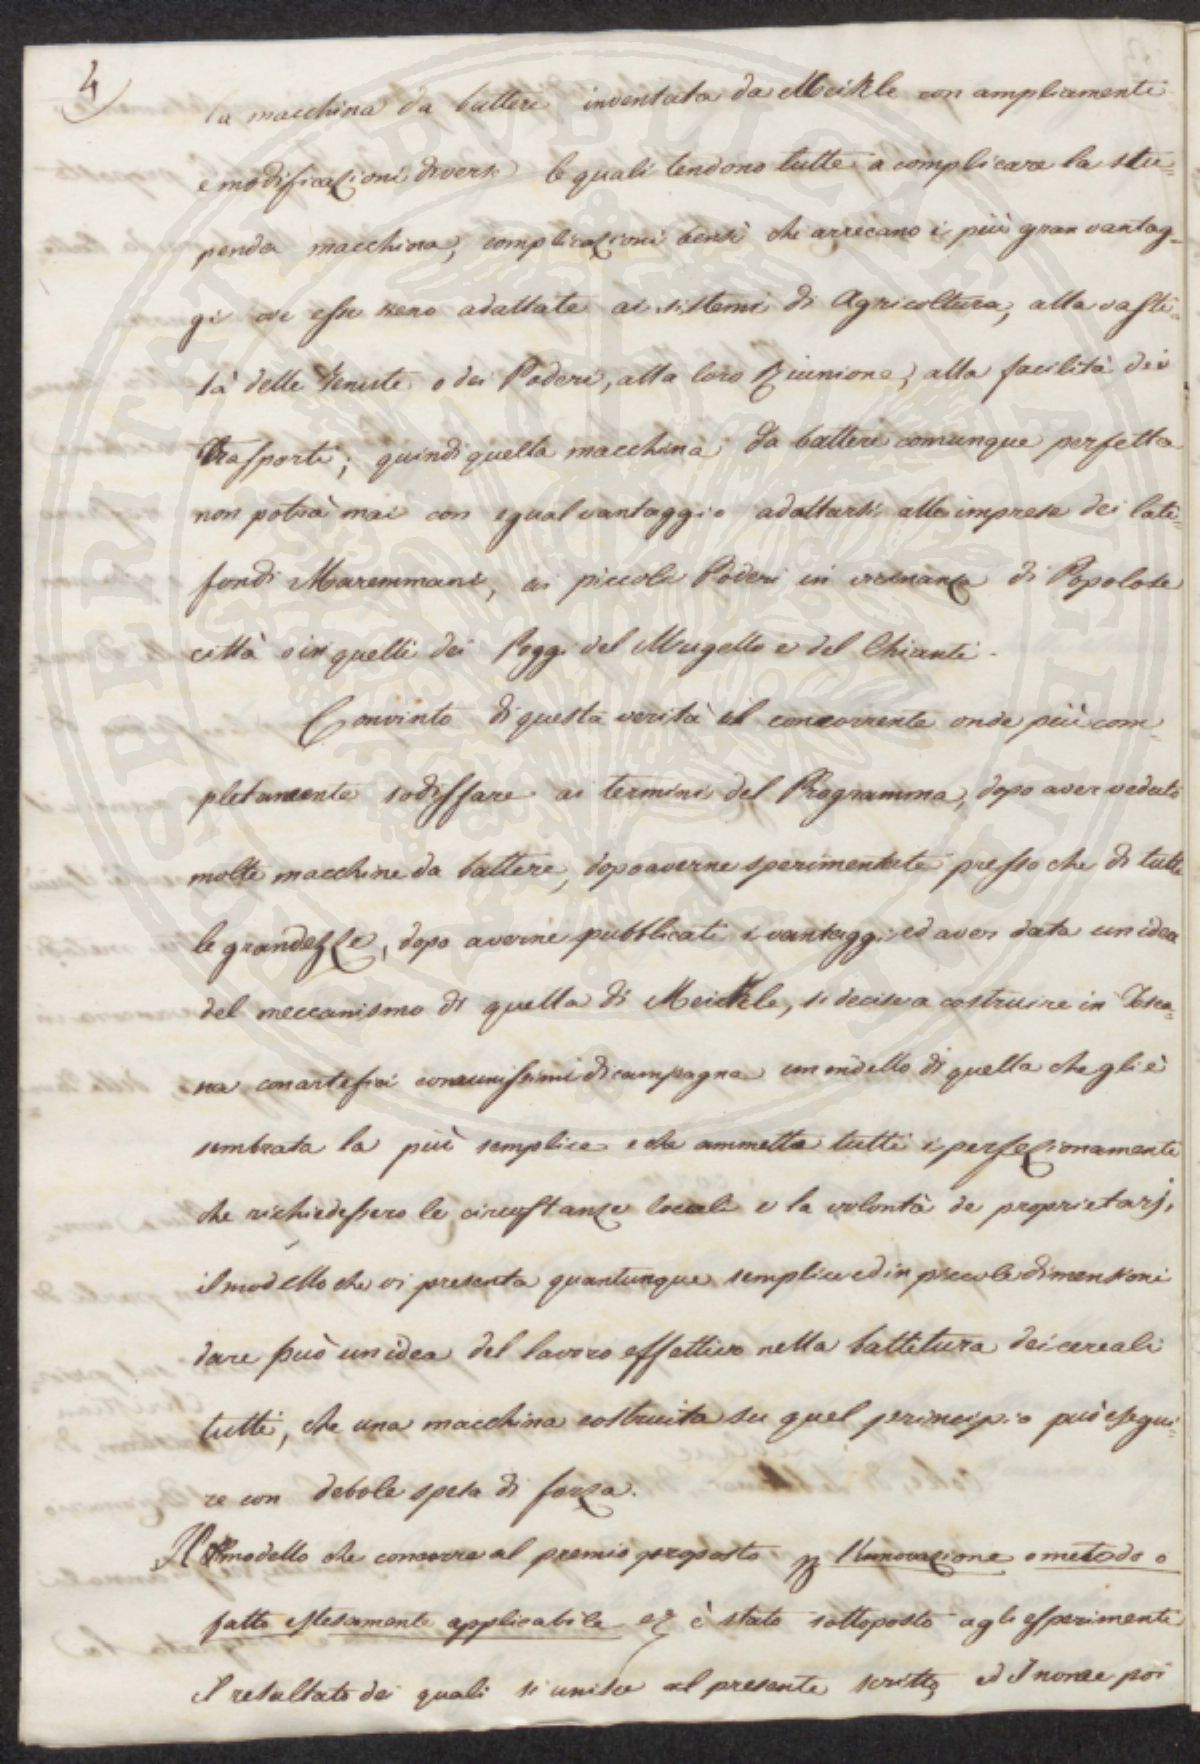 4
la macchina da battere inventata da Meikle con ampliamenti
e modificazioni diverse le quali tendono tutte a complicare la stu=
penda macchina, complicazioni bensì che arrecano i più gran vantag-
gi ove esse sieno adattate ai sistemi di Agricoltura, alla vasti=
tà delle Tenute o dei Poderi, alla loro Riunione, alla facilità dei
Trasporti; quindi quella macchina da battere comunque perfetta
non potrà mai con egual vantaggio adattarsi alle imprese dei lati=
fondi Maremmani, ai piccoli Poderi in vicinanza di Popolose
città o in quelli dei Poggi del Mugello e del Chianti.
Convinto di questa verità il concorrente onde più com-
pletamente sodisfare ai termini del Programma, dopo aver veduto
molte macchine da battere, dopo averne sperimentate presso che di tutte
le grandezze, dopo averne pubblicati i vantaggi ed aver data un idea
del meccanismo di quella di Meickle, si decise a costruire in Tosca=
na con artefici comunissimi di campagna un modello di quella che gli è
sembrata la più semplice e che ammetta tutti i perfezionamenti
che richiedessero le circostanze locali e la volontà de proprietarj,
il modello che vi presenta quantunque semplice ed in piccole dimensioni
dare può un idea del lavoro effettivo nella battitura dei cereali
tutti, che una macchina costruita su quel principio può esegui=
re con debole spesa di forza.
Il modello che concorre al premio proposto p l'innovazione o metodo o
fatto estesamente applicabile è stato sottoposto agli esperimenti
il resultato dei quali si unisce al presente scritto, ed I nomee poi